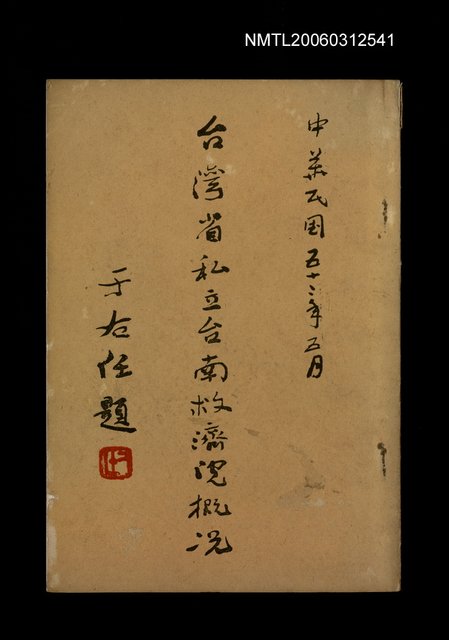 NMTL20060312541
中華民国五十二年五月
台灣省私立台南救濟院概况
于右任題